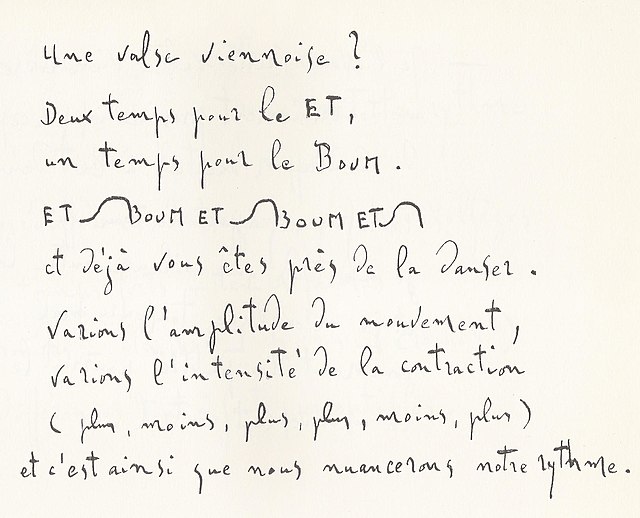 Une valse viennoise ?
Deux temps pour le ET,
un temps pour le BOUM.
ET BOUM ET BOUM ET
et déjà vous êtes près de la danser.
Varions l'amplitude du mouvement,
varions l'intensité de la contraction
(plus, moins, plus, plus, moins, plus)
et c'est ainsi que nous nuancerons notre rythme.